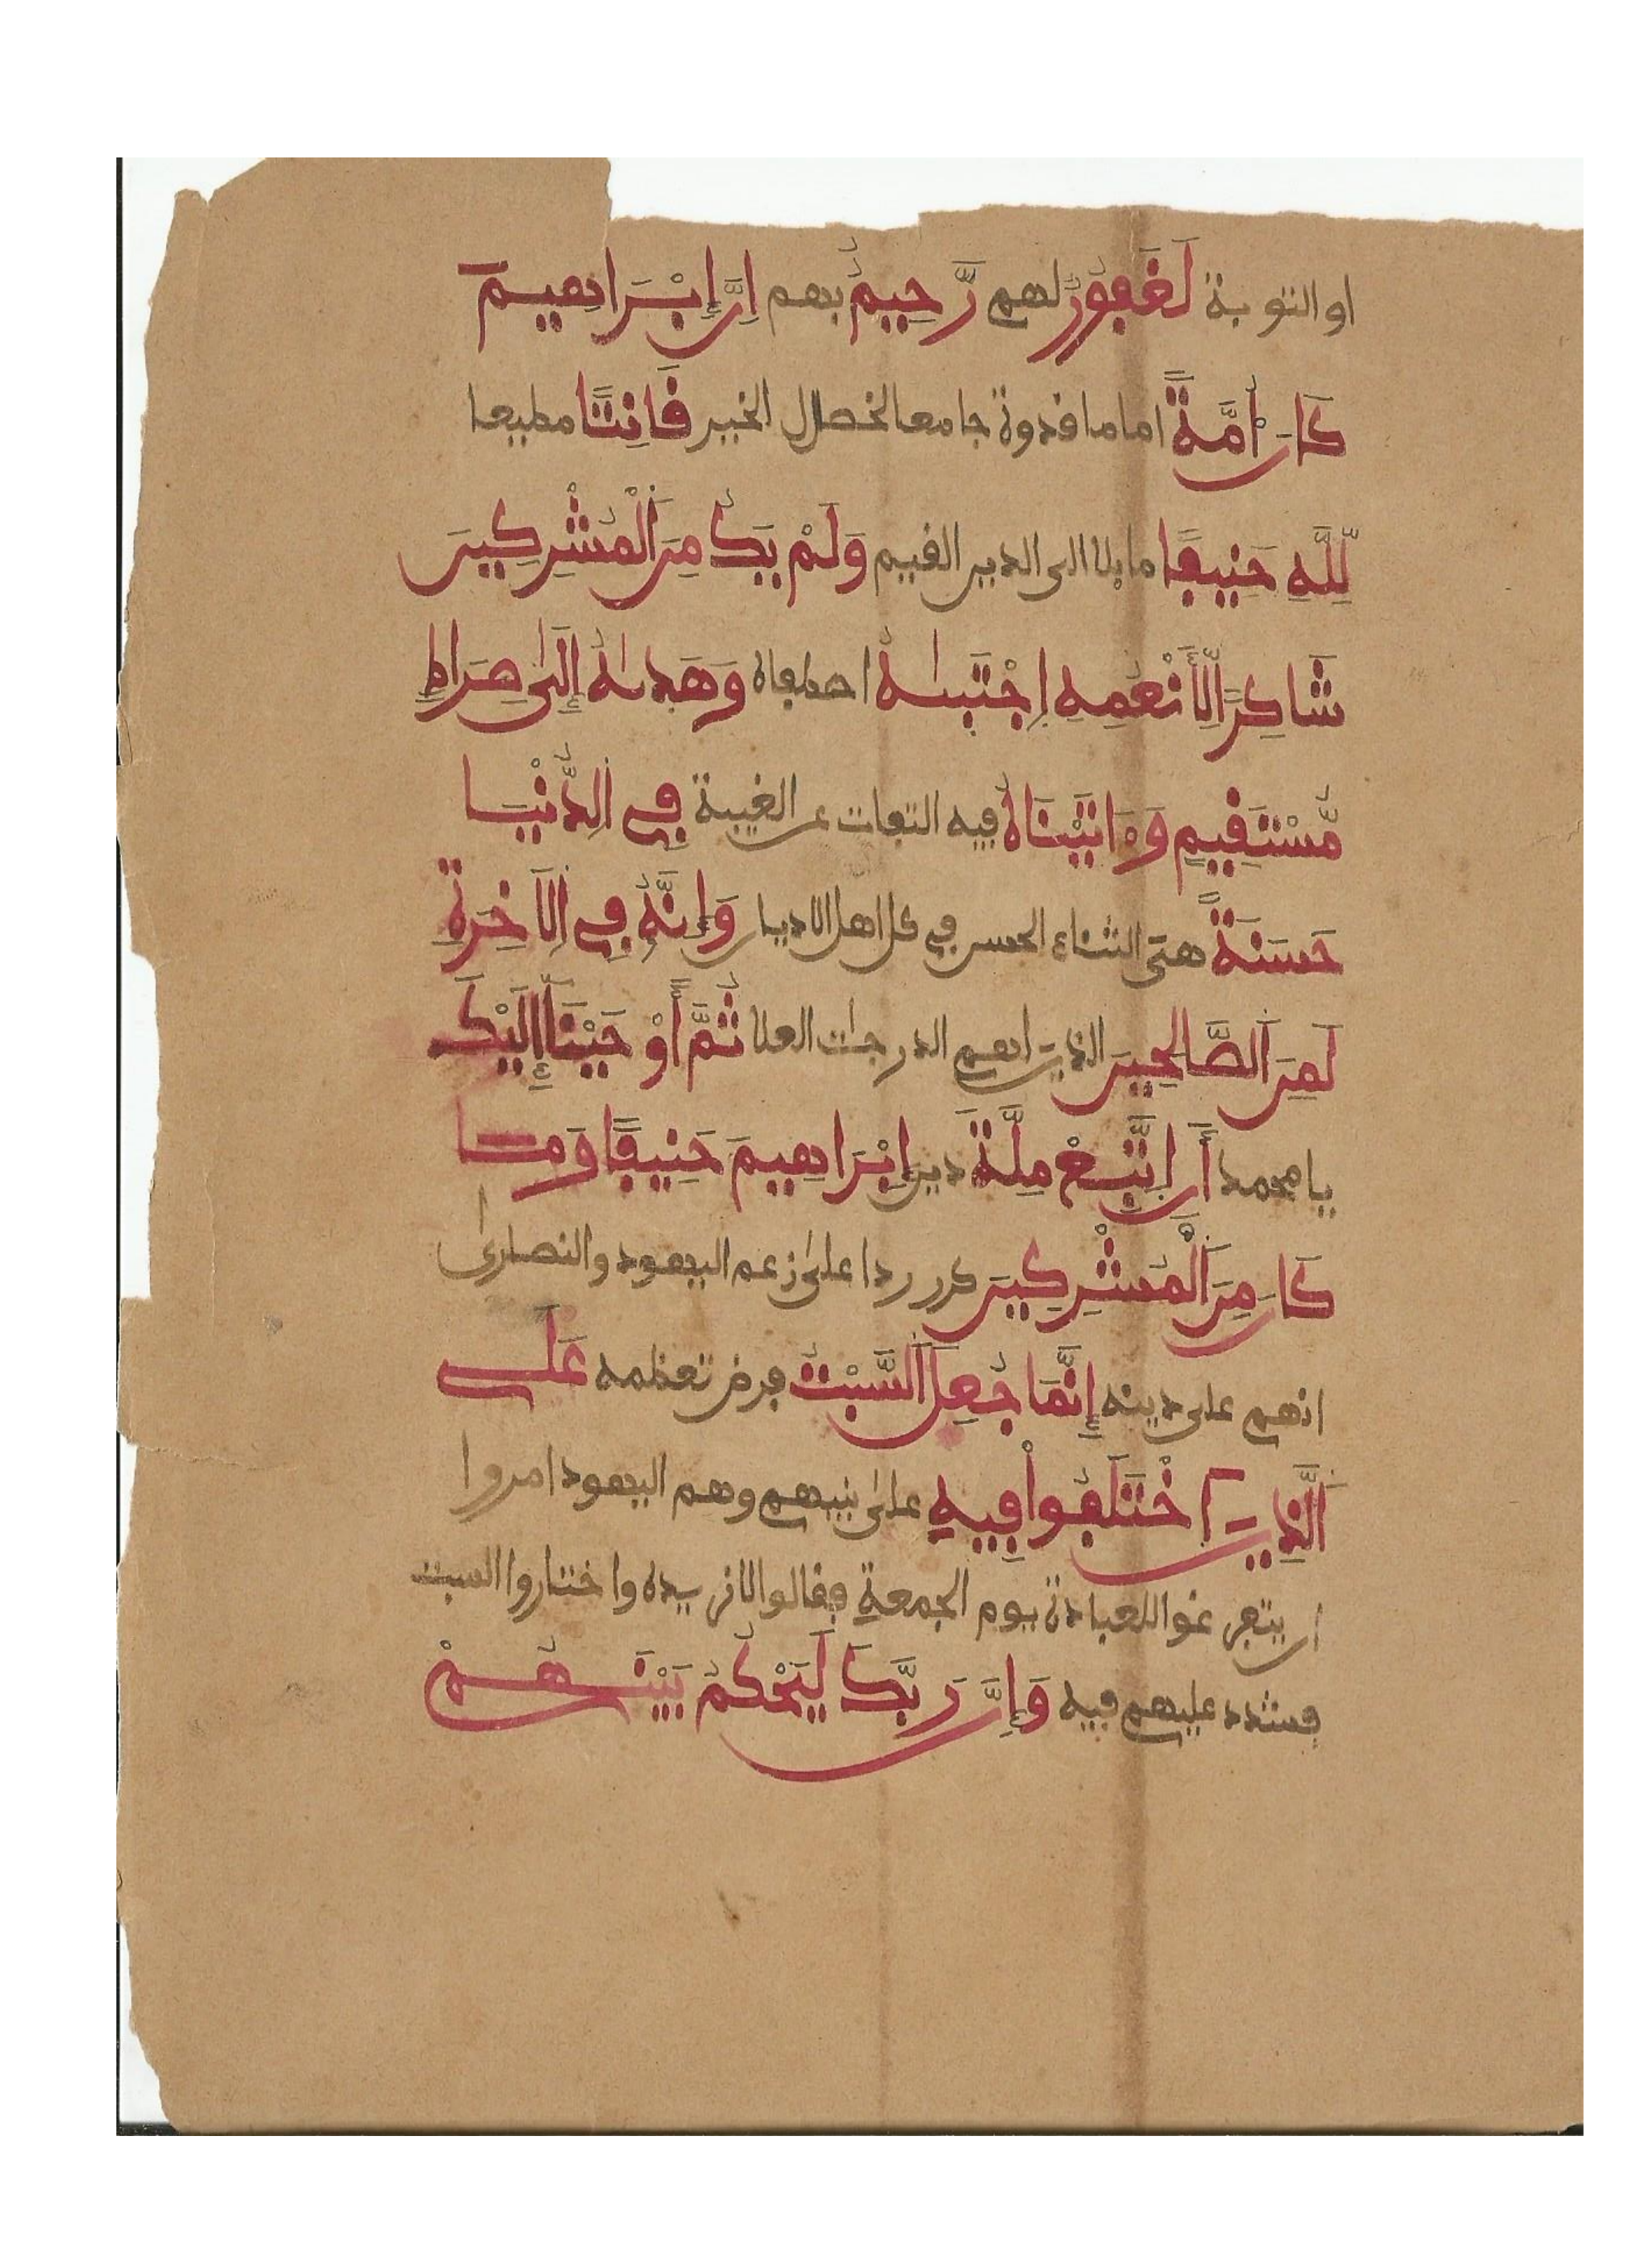 او التوبة لَغَفُورٌ لهم رَّحِيمٌ بهم إِنَّ إِبْرَاهِيمَ
كَانَ أُمَّةً اماما قدوة جامعا لخصال الخير قَانِتًا مطيعا
لِّلَّهِ حَنِيفًا مايلا الى الدين القيم وَلَمْ يَكُ مِنَ اَلْمُشْرِكِينَ
شَاكِرًا لِّأَنْعُمِهِ اِجْتَبىٰهُ اصطفاه وَهَدىٰهُ إِلَىٰ صِرَاطٍ
مُّسْتَقِيمٍ وَءَاتَيْنَاهُ فيه التفات عن الغيبة فِي اِلدُّنْيَا
حَسَنَةً هي الثناء الحسن في كل اهل الاديان وَإِنَّهُ فِي اِلَاخِرَةِ
لَمِنَ اَلصَّالِحِينَ الذين لهم الدرجات العلا ثُمَّ أَوْحَيْنَا إِلَيْكَ
يا محمد أَنِ اِتَّبِعْ مِلَّةَ دين إِبْرَاهِيمَ حَنِيفًا وَمَا
كَانَ مِنَ اَلْمُشْرِكِينَ كرر ردا على زعم اليهود والنصارى
انهم على دينه إِنَّمَا جُعِلَ اَلسَّبْتُ فرض تعظمه عَلَى
اَلَّذِينَ اَخْتَلَفُواْ فِيهِ على نبيهم وهم اليهود امروا
ان يتفرغوا للعبادة يوم الجمعة فقالوا لا نريده واختاروا السبت
فشدد عليهم فيه وَإِنَّ رَبَّكَ لَيَحْكُمُ بَيْنَهُمْ